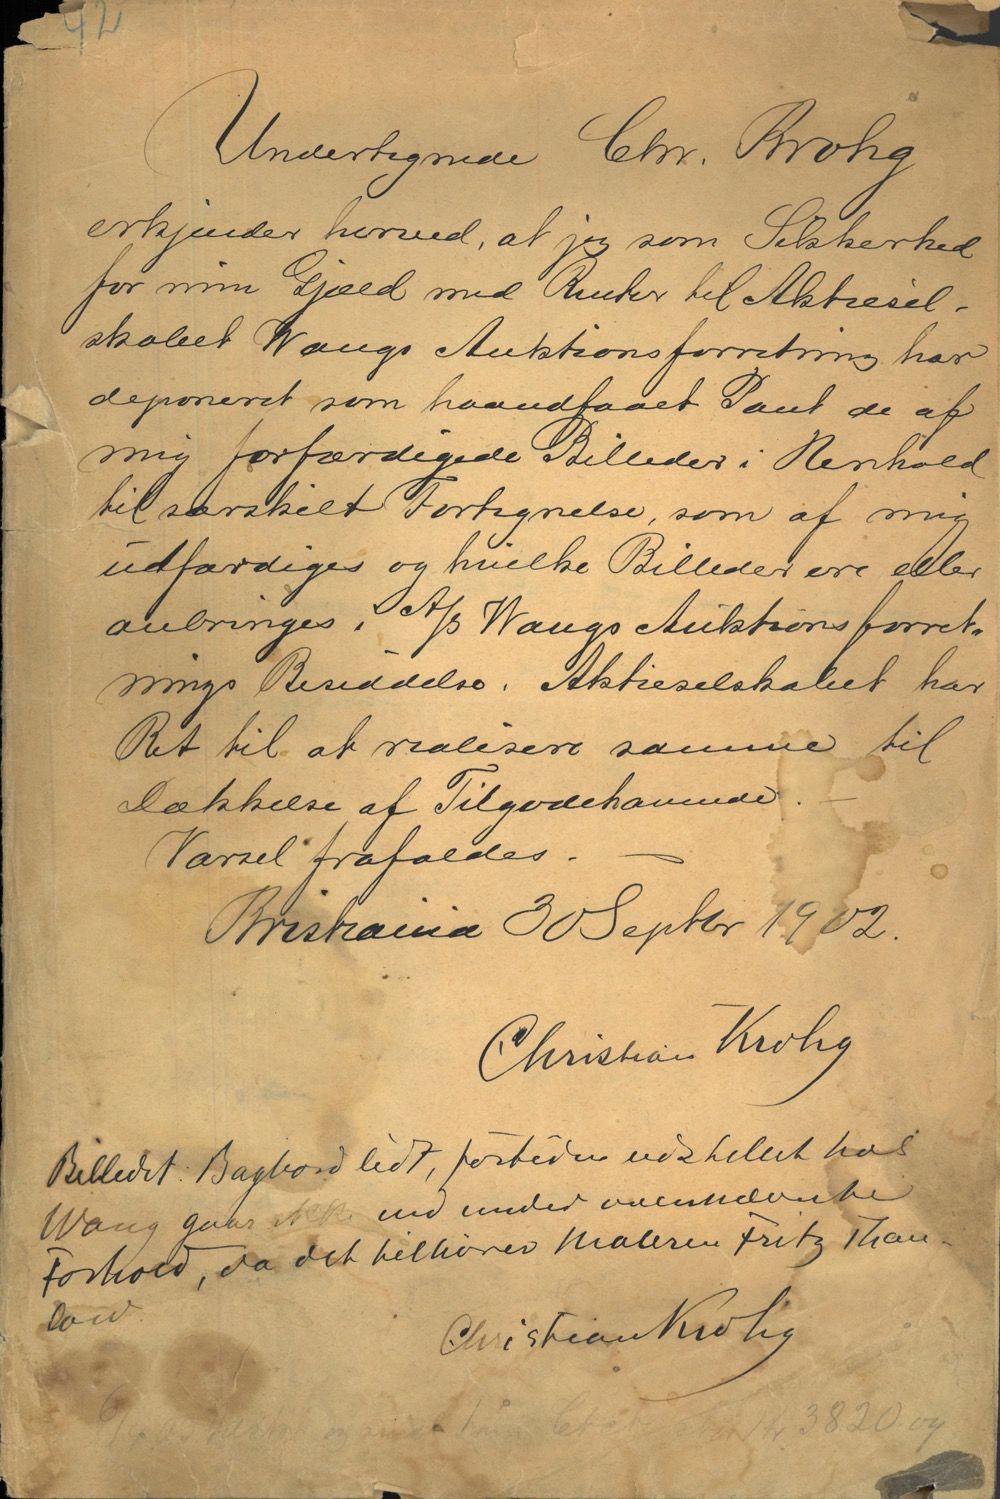 42
Undertegnede Chr. Krohg
erkjender herved, at jeg som Sikkerhed
for min Gjæld med Renter til Aktiesel-
skabet Wangs Auktionsforretning har
deponeret som haandfaaet Pant de af
mig forfærdigede Billeder i Henhold
til særskilt Fortegnelse, som af mig
udfærdiges og hvilke Billeder ere eller
anbringes i A/S Wangs Auktionsforret-
nings Besiddelse. Aktieselskabet har
Ret til at realisere samme til
Dækkelse af Tilgodehavende. —
Varsel frafaldes. —
Kristiania 30 Septbr 1902.
Christian Krohg
Billedet: Bagbord lidt, fortiden udstillet hos
Wang gaar ikke ind under ovennævnte
Forhold, da det tilhører Maleren Fritz Thau-
low
Christian Krohg
og Kr 3820 og